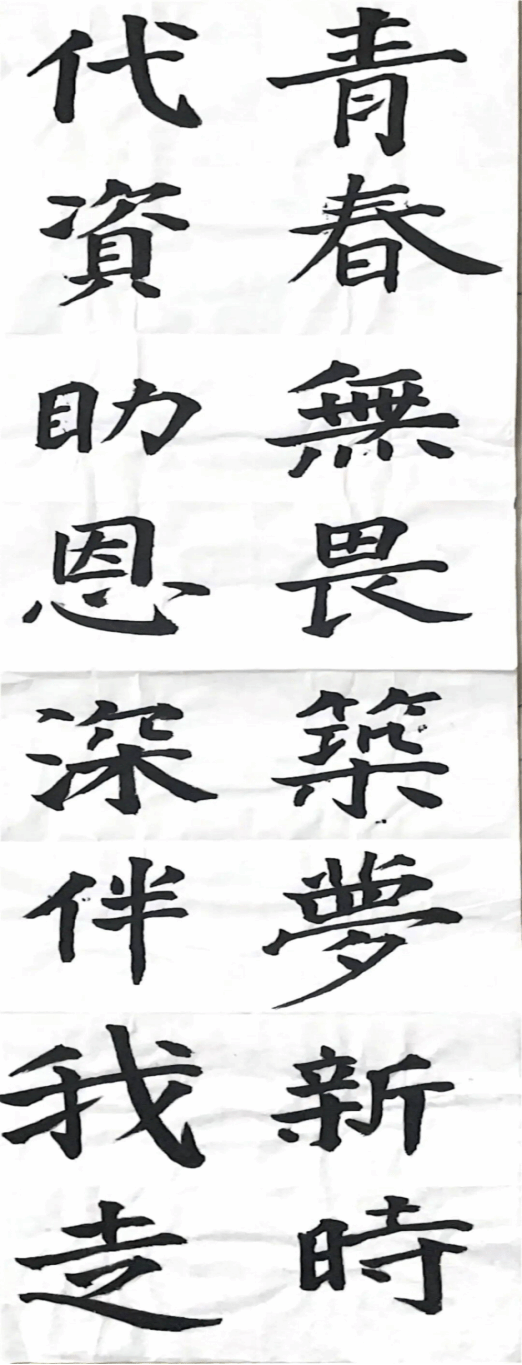 青春無畏築夢新時
代資助恩深伴我走